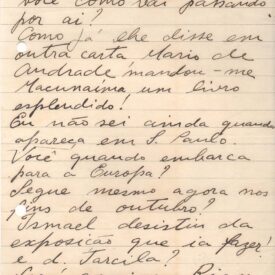 você como vai passando
por ai?
Como já lhe disse em
outra carta Mario de
Andrade mandou-me
Macunaíma um livro
esplendido!
Eu não sei ainda quando
apareça em S. Paulo.
Você quando embarca
para a Europa?
Segue mesmo agora nos
fins de outubro?
Ismael desistiu da
exposição que ia fazer!
e d. Tarcila?